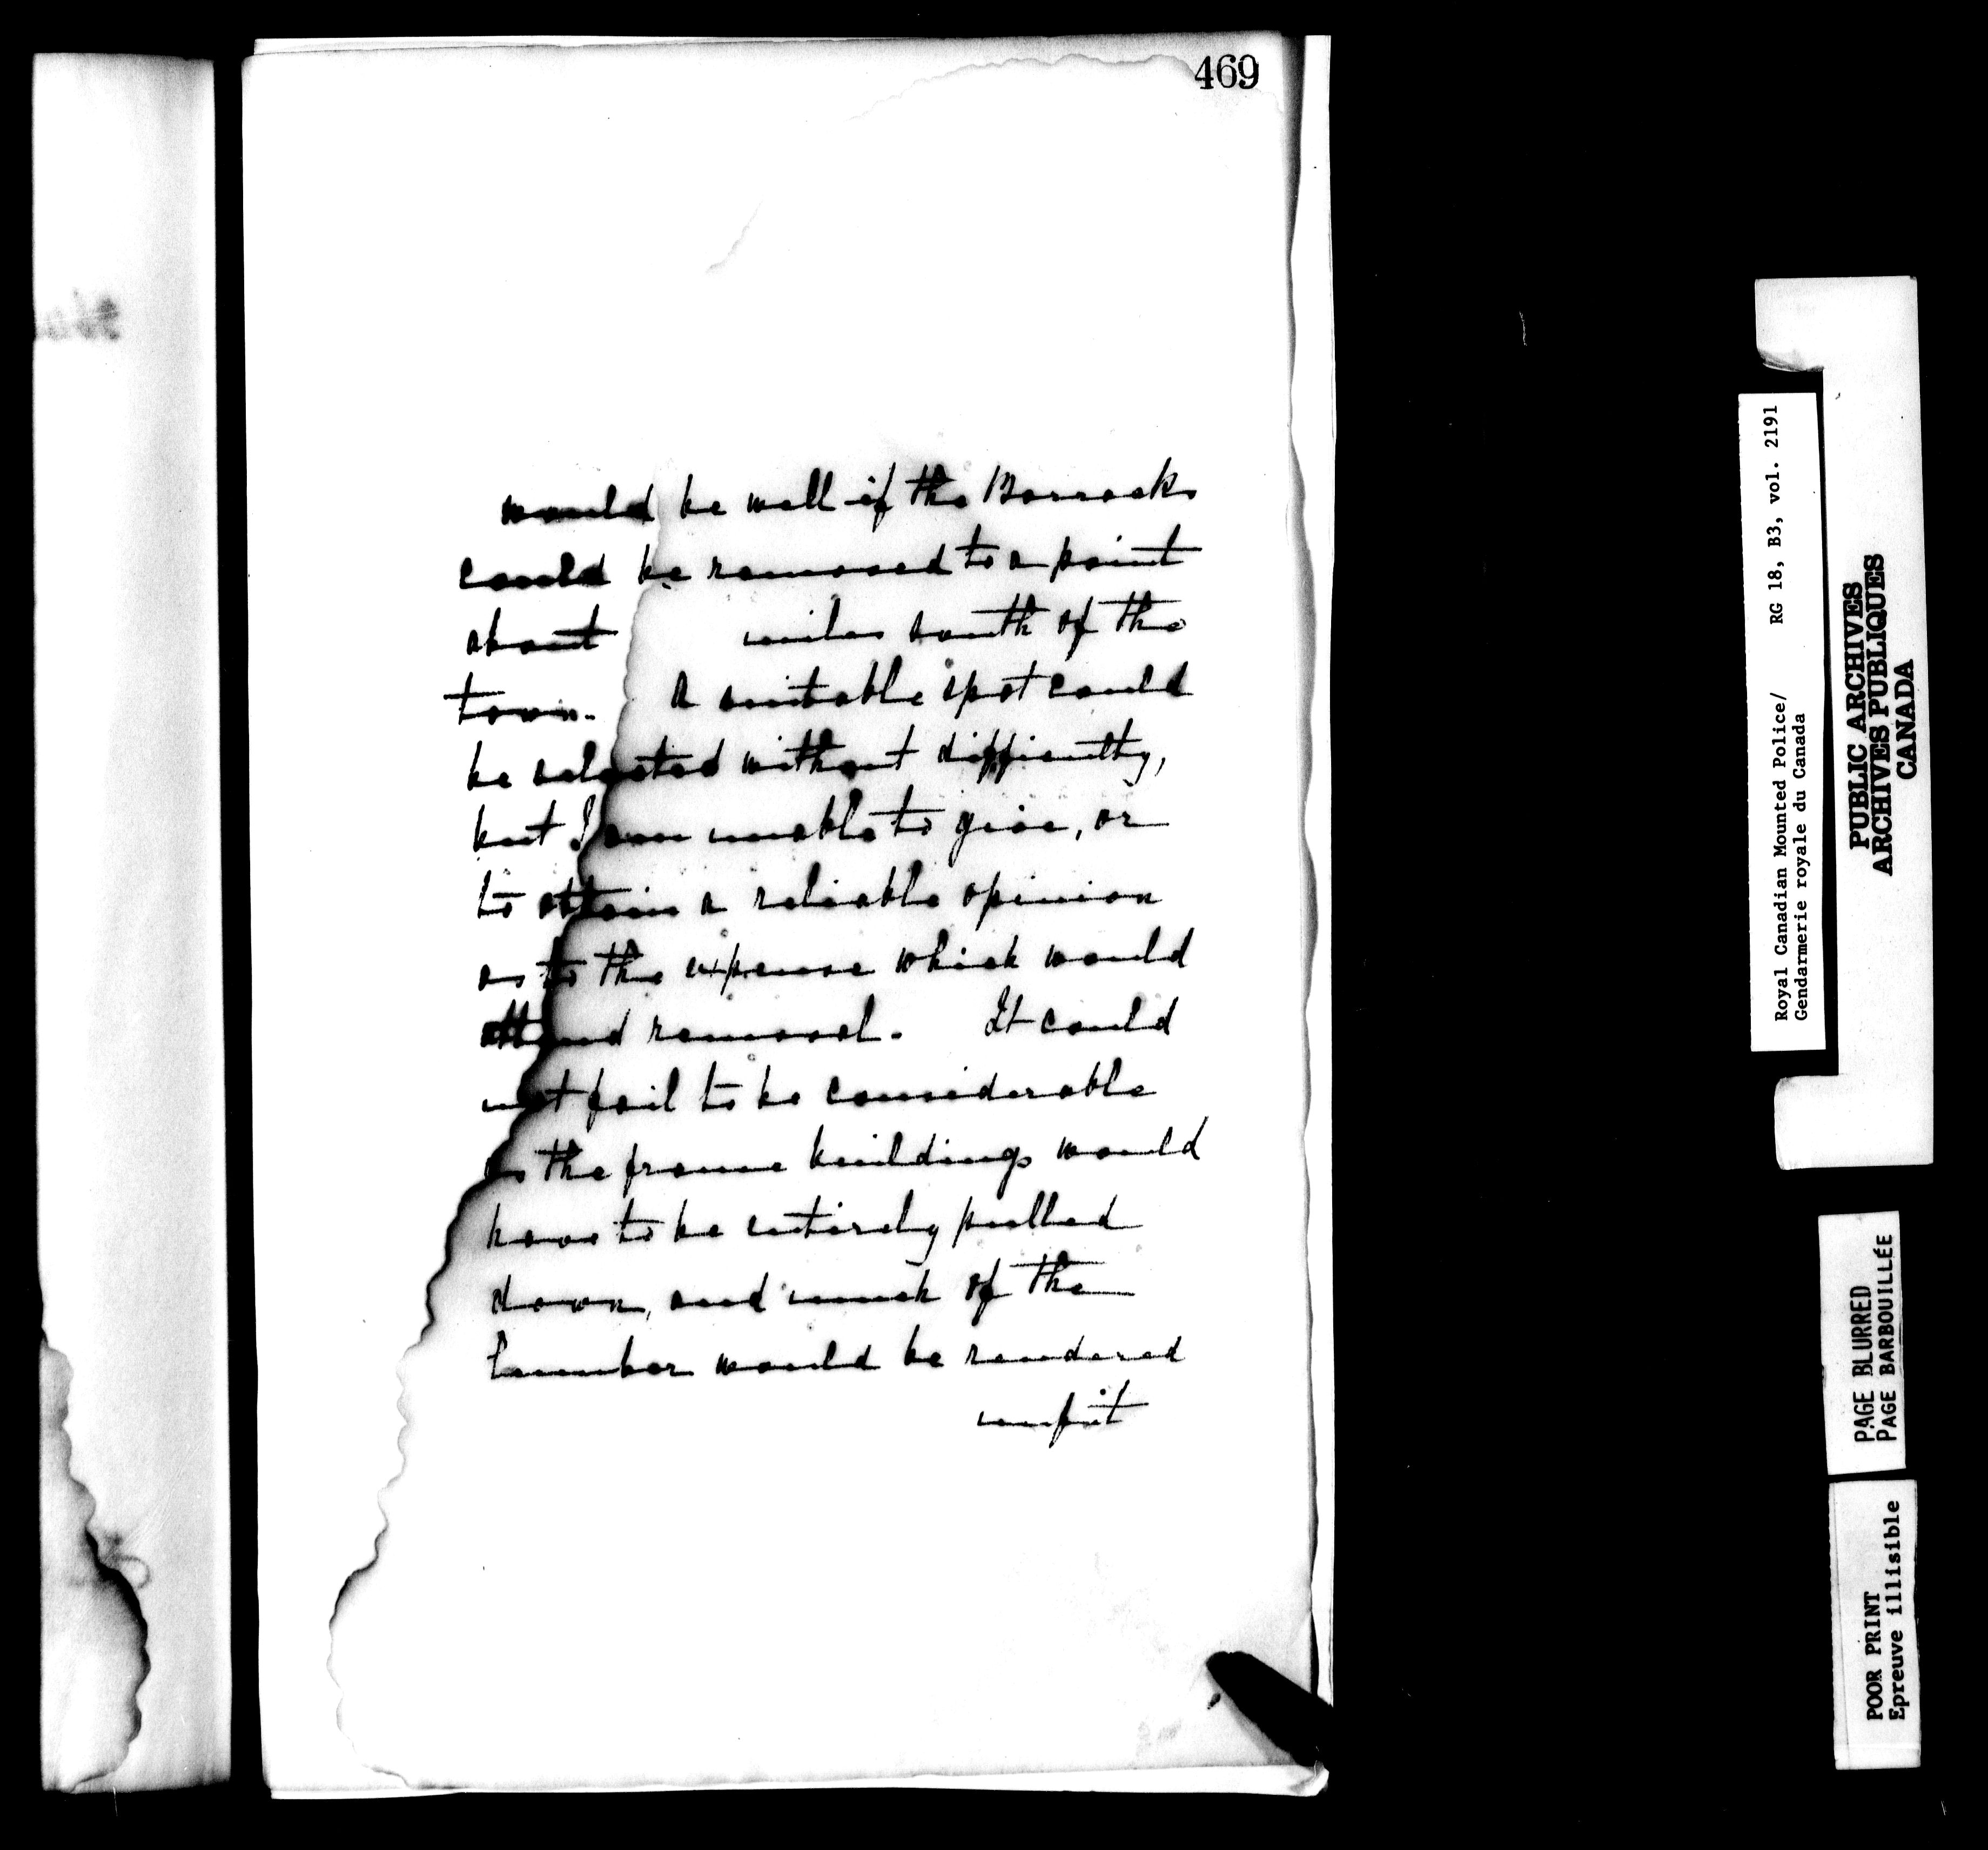 469
would be well if the Barracks
could be removed to a point
about miles south of the
town. A suitable spot could
be selected without difficulty,
but I am unable to give, or
to obtain a reliable opinion
as to the expense which would
attend removal. It could
not fail to be considerable
as the frame buildings would
have to be entirely pulled
down, and much of the
lumber would be rendered
unfit
Royal Canadian Mounted Police/ RG 18, B3, vol. 2191
Gendarmerie royale du Canada
PUBLIC ARCHIVES
ARCHIVES PUBLIQUES
CANADA
PAGE BLURRED
PAGE BARBOUILLÉE
POOR PRINT
Epreuve illisible